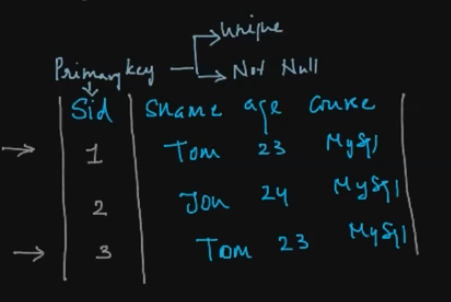 Unique
Primary key Not Null
Sid Sname age Course
1 Tom 23 MySql
2 Jon 24 MySql
3 Tom 23 MySql